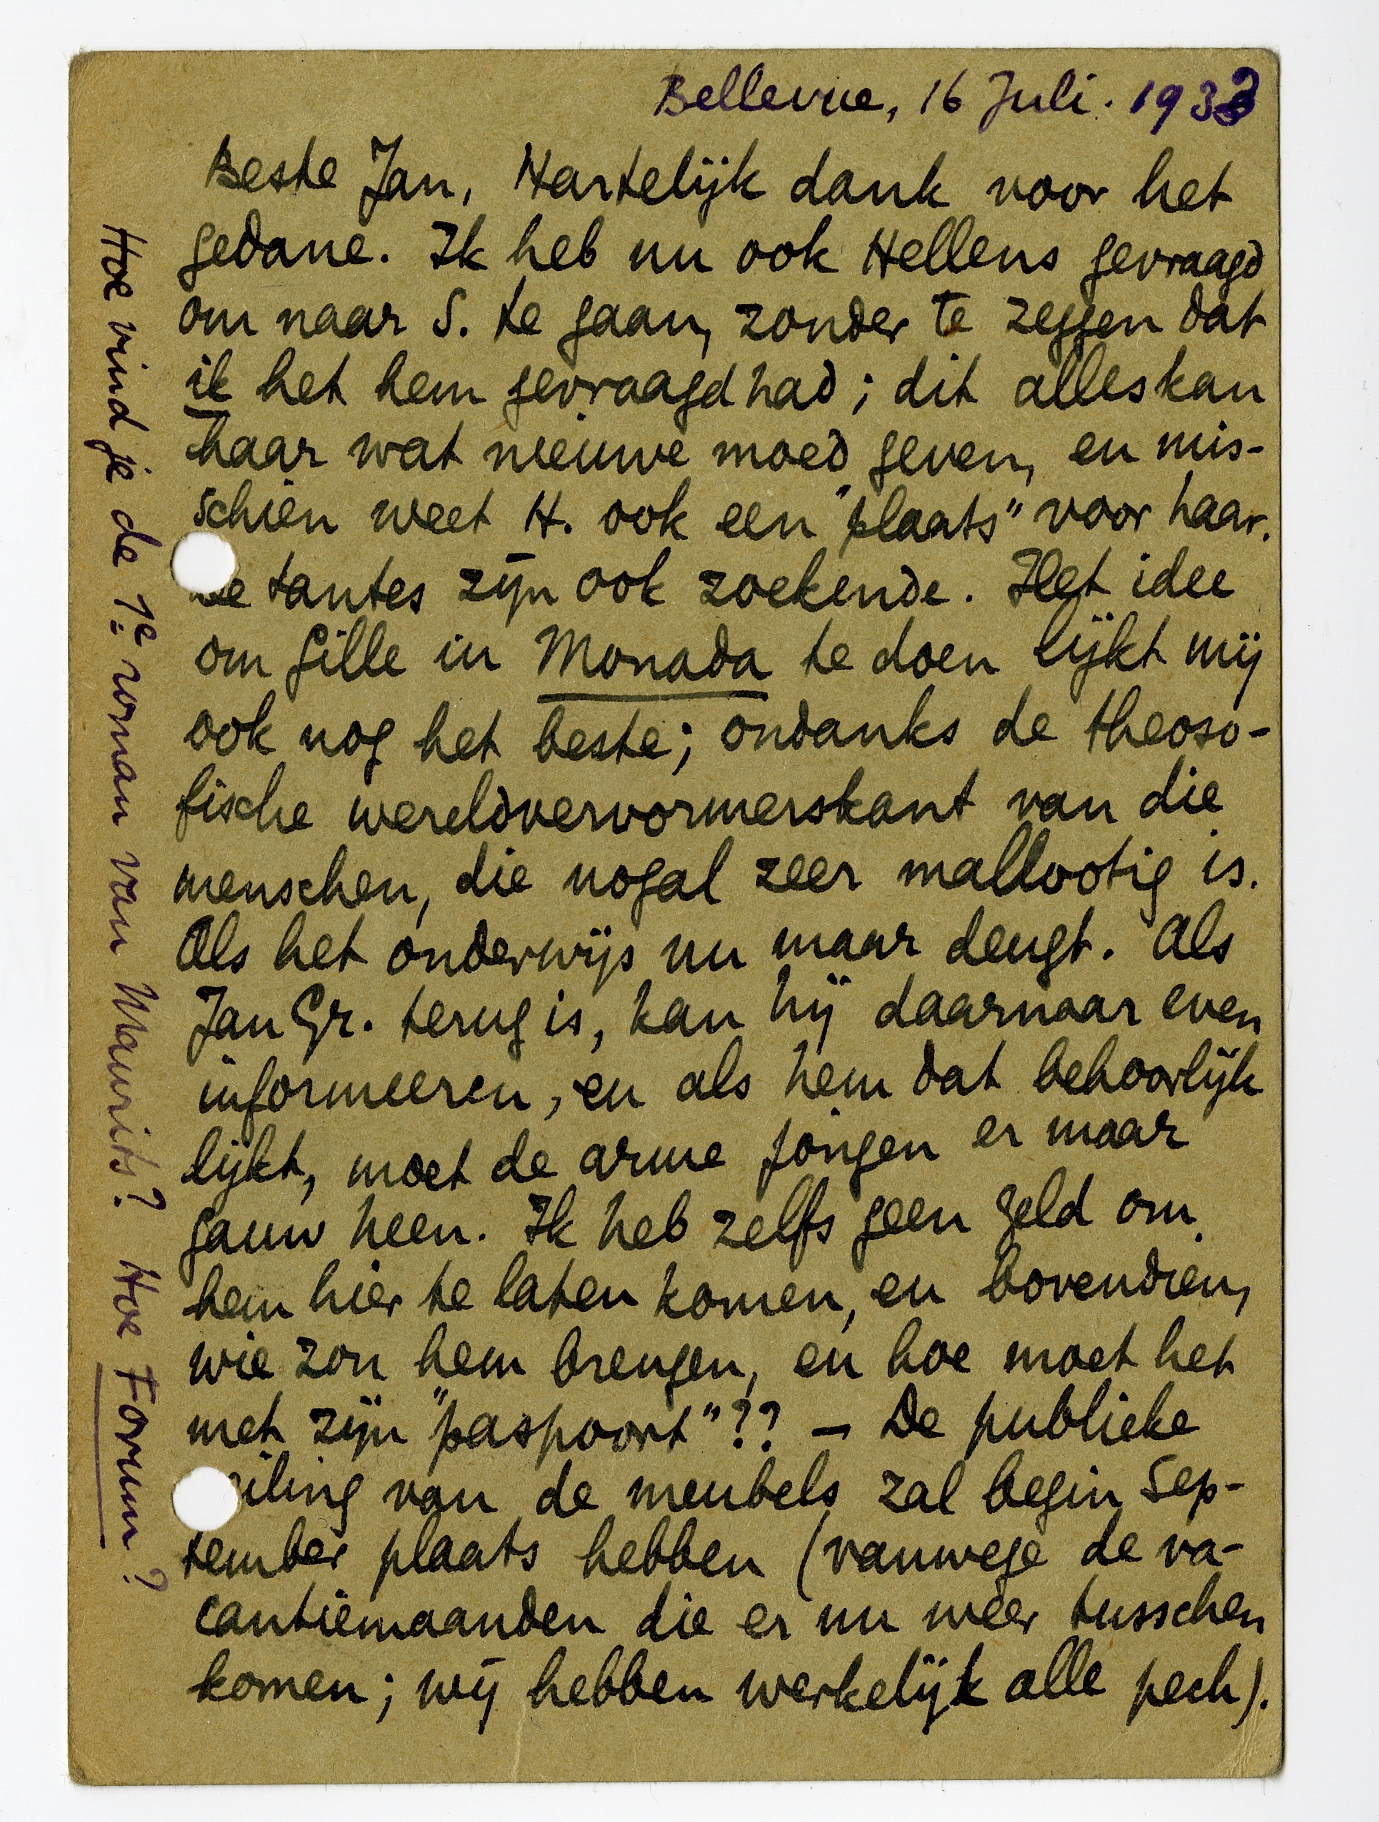 Bellevue, 16 Juli. 1933
Beste Jan, Hartelijk dank voor het
gedane. Ik heb nu ook Hellens gevraagd
om naar S. te gaan, zonder te zeggen dat
ik het hem gevraagd had; dit alles kan
haar wat nieuwe moed geven, en mis-
schien weet H. ook een "plaats" voor haar.
De tantes zijn ook zoekende. Het idee
om Gille in Monada te doen lijkt mij
ook nog het beste; ondanks de theoso-
fische wereldvervormerskant van die
menschen, die nogal zeer mallootig is.
Als het onderwijs nu maar deugt. Als
Jan Gr. terug is, kan hij daarnaar even
informeeren, en als hem dat behoorlijk
lijkt, moet de arme jongen er maar
gauw heen. Ik heb zelfs geen geld om
hem hier te laten komen, en bovendien,
wie zou hem brengen, en hoe moet het
met zijn "paspoort"?? – De publieke
eiling van de meubels zal begin Sep-
tember plaats hebben (vanwege de va-
cantiemaanden die er nu weer tusschen
komen; wij hebben werkelijk alle pech).
Hoe vind je de 1e roman van Maurits? Hoe Forum?